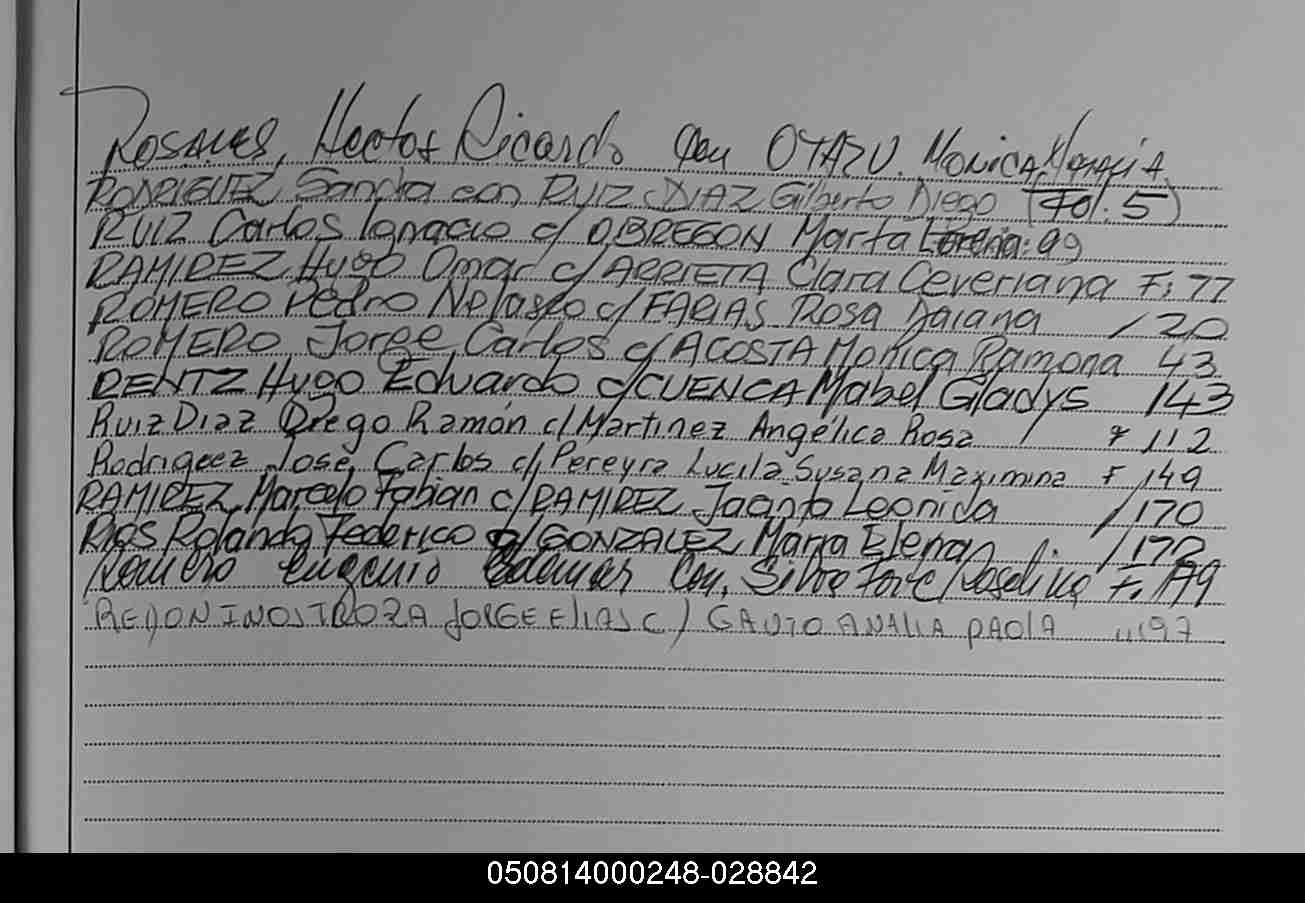 ROSALES, Hector Ricardo con OTAZU. MONICA
RODRIGUEZ Sandra con RUIZ DIAZ Gilberto Diego (Fol. 5)
RUIZ Carlos Ignacio c/ OBREGON Marta Lorena: 99
RAMIREZ Hugo Omar c/ ARRIETA Clara Ceveriana F: 77
ROMERO Pedro Nolasko c/ FARIAS Rosa Daiana / 20
ROMERO Jorge Carlos c/ ACOSTA Monica Ramona 43
RENTZ Hugo Eduardo c/ CUENCA Mabel Gladys 143
Ruiz Diaz Diego Ramón c/ Martinez Angélica Rosa F 112
Rodriguez José Carlos c/ Pereyra Lucila Susana Maximina F 149
RAMIREZ Marcelo Fabian c/ RAMIREZ Jacinta Leonida /170
RIOS Rolando Federico c/ GONZALEZ Maria Elena /172
Romero Eugenio Con, Silva Joselina F. 179
REDON INOSTROZA JORGE ELIAS C/ GAUTO ANALIA PAOLA 197
050814000248-028842